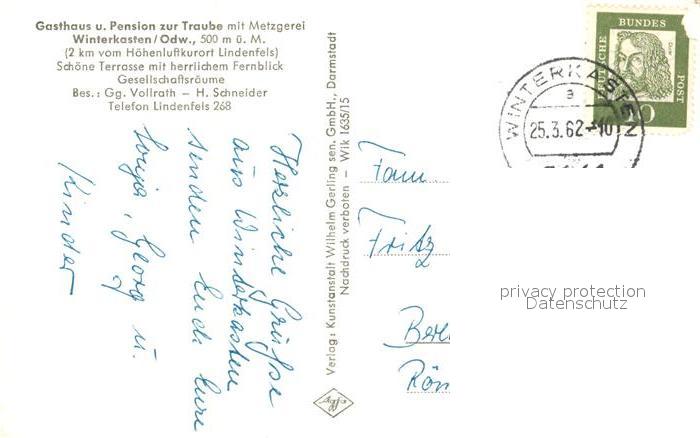 Gasthaus u. Pension zur Traube mit Metzgerei
Winterkasten/Odw., 500 m ü. M.
(2 km vom Höhenluftkurort Lindenfels)
Schöne Terrasse mit herrlichem Fernblick
Gesellschaftsräume
Bes.: Gg. Vollrath — H. Schneider
Telefon Lindenfels 268
Herzliche Grüsse
aus Winterkasten
senden Euch Eure
Sonja, Georg u.
Kinder
Verlag: Kunstanstalt Wilhelm Gerling sen. GmbH., Darmstadt
Nachdruck verboten — Wik 1635/15
Agfa
Fam.
Fritz
DEUTSCHE BUNDES POST
Dürer
WINTERKASTEN
a
25.3.62-10
privacy protection
Datenschutz